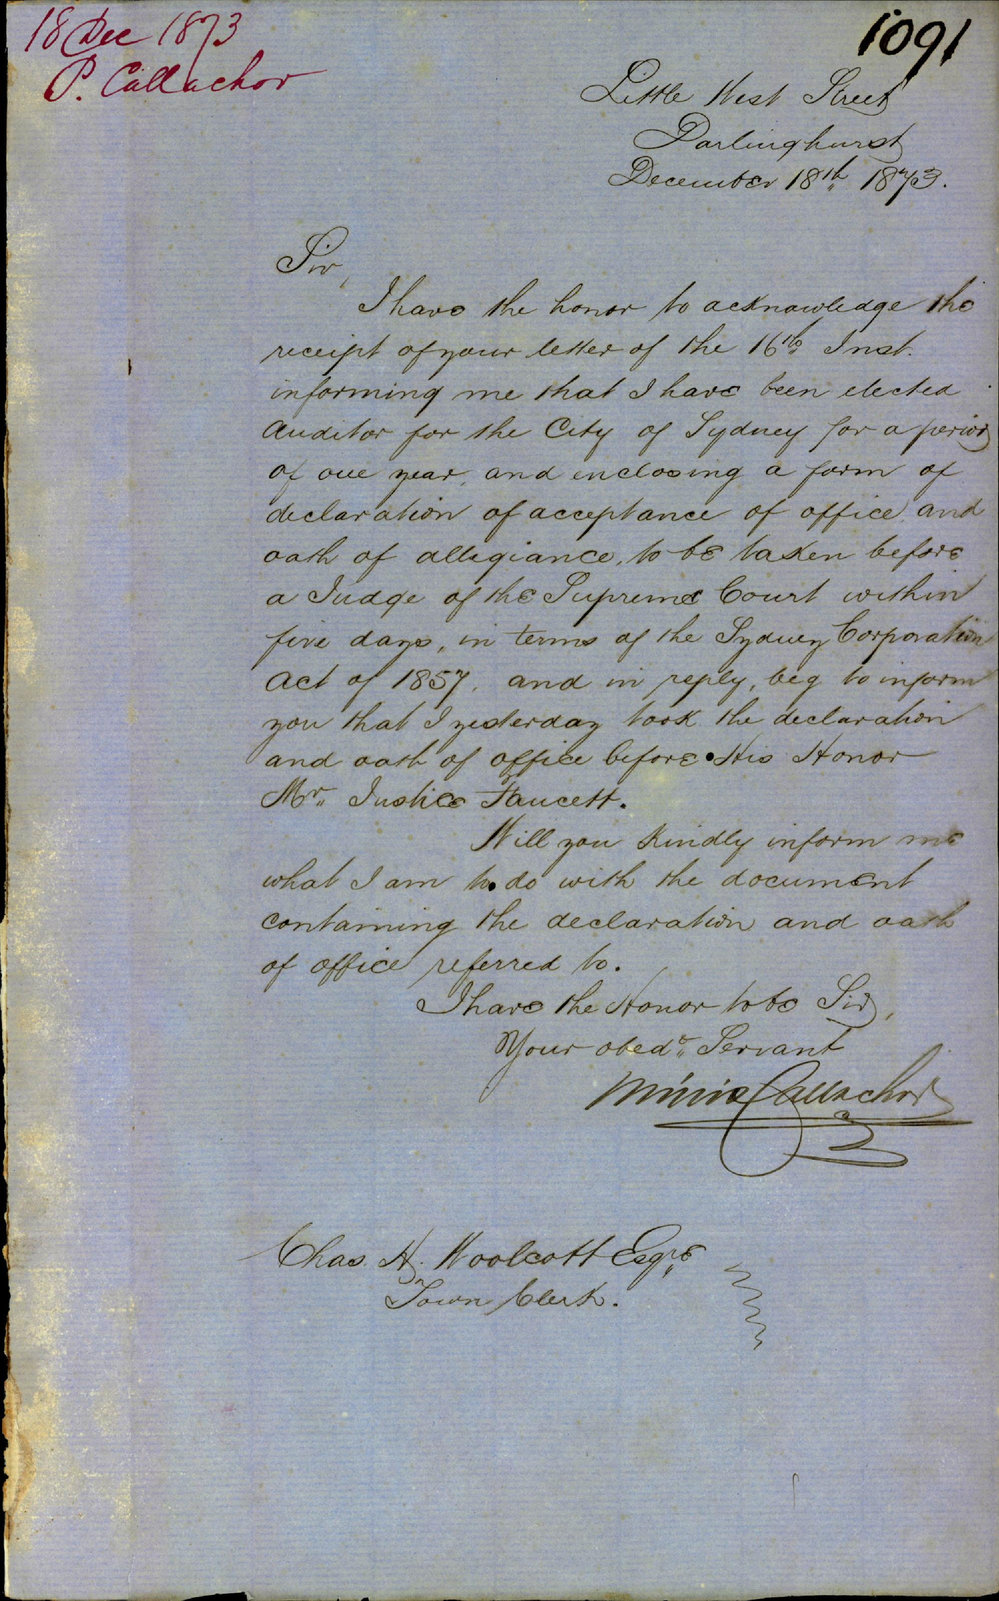 18 Dec 1873
P. Callachor
1091
Little West Street
Darlinghurst
December 18th 1873.
Sir,
I have the honor to acknowledge the
receipt of your letter of the 16th Inst.
informing me that I have been elected
Auditor for the City of Sydney for a period
of one year, and inclosing a form of
declaration of acceptance of office and
oath of allegiance, to be taken before
a Judge of the Supreme Court within
five days, in terms of the Sydney Corporation
Act of 1857, and in reply, beg to inform
you that I yesterday took the declaration
and oath of office before His Honor
Mr. Justice Faucett.
Will you kindly inform me
what I am to do with the document
containing the declaration and oath
of office referred to.
I have the Honor to be Sir,
Your obedt. Servant
Callachor
Chas. H. Woolcott Esqre
Town Clerk.